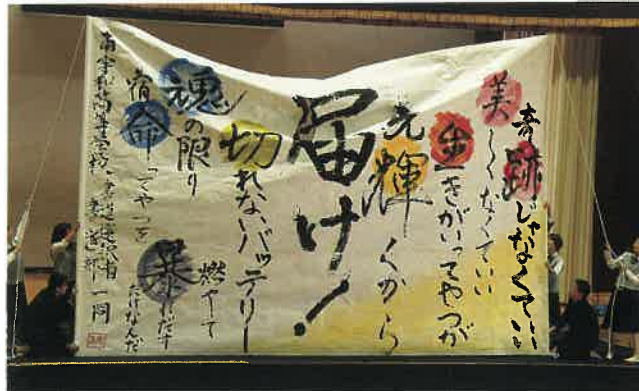 奇跡じゃなくていい
美しくなくていい
生きがいってやつが
光輝くから
届け!
切れないバッテリー
魂の限り
宿命ってやつを
燃やして
暴れだす
だけなんだ
高等学校 書道部一同